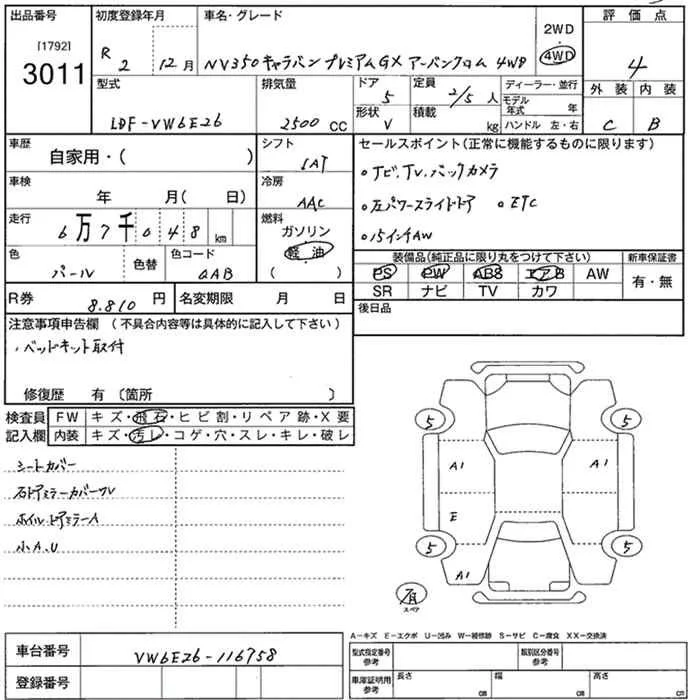 出品番号
[1792]
3011
初度登録年月
R 2 12 月
車名・グレード
NV350キャラバン プレミアムGX アーバンクロム 4WD
2WD
4WD
評価点
4
外装 内装
C B
型式
LDF-VW6E26
排気量
2500 CC
ドア 5
形状 V
定員 2/5 人
積載 kg
ディーラー・並行
モデル年式 年
ハンドル 左・右
車歴
自家用・( )
シフト
IAT
車検
年 月( 日)
冷房
AAC
走行
6万7千048 km
燃料
ガソリン
軽油
( )
色
パール
色替
色コード
QAB
R券 8.810 円
名変期限 月 日
セールスポイント(正常に機能するものに限ります)
。ナビ、TV、バックカメラ
。左パワースライドドア 。ETC
。15インチAW
装備品(純正品に限り丸をつけて下さい)
新車保証書
PS PW ABS エアB AW
SR ナビ TV カワ
有・無
後日品
注意事項申告欄 (不具合内容等は具体的に記入して下さい)
・ベッドキット取付
修復歴 有 〔箇所 〕
検査員記入欄
FW キズ・飛石・ヒビ割・リペア跡・X要
内装 キズ・汚レ・コゲ・穴・スレ・キレ・破レ
シートカバー
右ドアミラーカバーウレ
ホイル ドアミラーA
小A.U
5 5
A1 A1
E
5 5
A1
有
スペア
A－キズ E－エクボ U－凹み W－補修跡 S－サビ C－腐食 XX－交換済
車台番号
VW6E26-116758
登録番号
型式指定番号参考
類別区分番号参考
車庫証明用参考
長さ cm
幅 cm
高さ cm